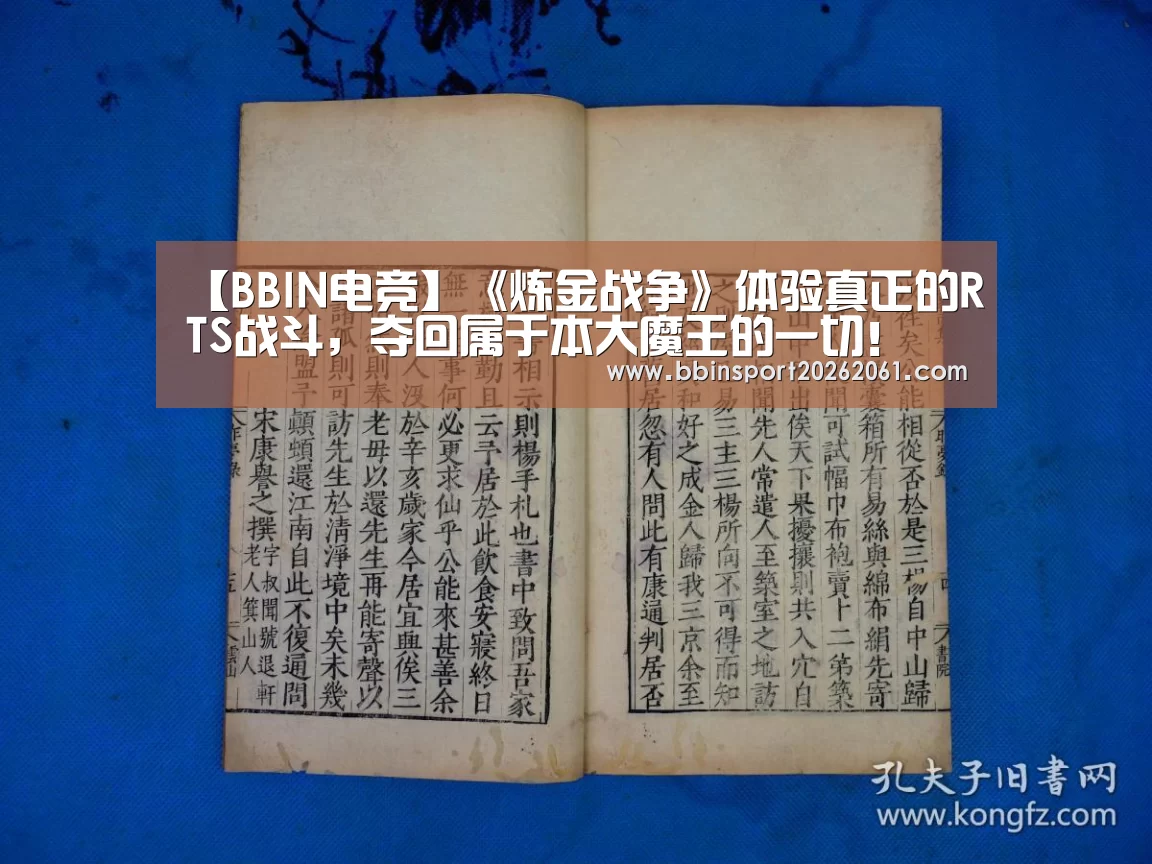 【BBIN电竞】《炼金战争》体验真正的R
TS战斗，夺回属于本大魔王的一切！
www.bbinsport20262061.com
往矣能相從否於是三楊自中山歸
囊箱所有易絲與綿布絹先寄
聞可試幅巾布袍賣卜二第築
山中出俟天下果擾攘則共入穴自
聞先人常遣人至築室之地訪
之易三主三楊所向不可得而知
和好之成金人歸我三京余至
居忽有人問此有康通判居否
相示則楊手札也書中致問吾家
意勤且云予居於此飲食安寢終日
無事何必更求仙乎公能來甚善余
人沒於辛亥歲家今居宜興俟三
則奉老母以還先生再能寄聲以
諸孤則可訪先生於清淨境中矣未幾
盟予顛頓還江南自此不復通問
宋康譽之撰字叔聞號退軒老人箕山人
昨夢錄
五
雲山
書院
孔夫子旧書网
www.kongfz.com